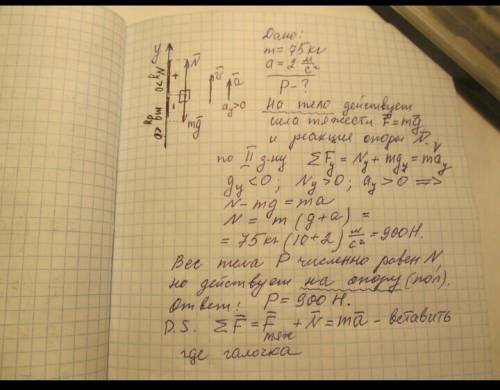 y
N̅
+
-
mg̅
v̅
a̅
a_y>0
Дано:
m = 75 кг
a = 2 м/с²
P - ?
На тело действует
сила тяжести F̅ = mg̅
и реакция опоры N̅. ∨
по II з-ну ΣF_y = N_y + mg_y = ma_y
g_y < 0; N_y > 0; a_y > 0 =>
N - mg = ma
N = m (g + a) =
= 75 кг (10 + 2) м/с² = 900 Н.
Вес тела P численно равен N,
но действует на опору (пол).
Ответ: P = 900 Н.
P.S. ΣF̅ = F̅тяж + N̅ = ma̅ - вставить
где галочка